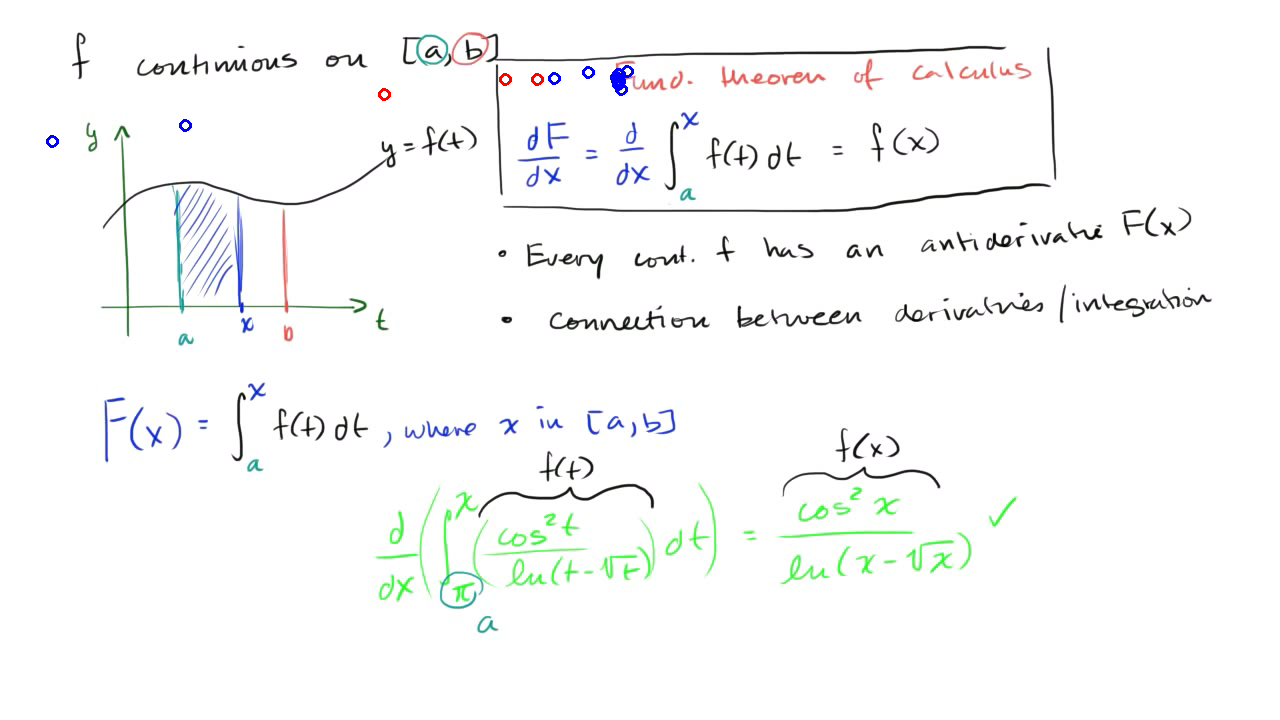 f continuous on [a, b]
Fund. theorem of calculus
y
y = f(t)
dF/dx = d/dx ∫_a^x f(t) dt = f(x)
• Every cont. f has an antiderivative F(x)
• connection between derivatives / integration
t
a x b
F(x) = ∫_a^x f(t) dt, where x in [a, b]
f(t) f(x)
d/dx ( ∫_π^x ( cos²t / ln(t-√t) ) dt ) = cos² x / ln(x-√x) ✓
a